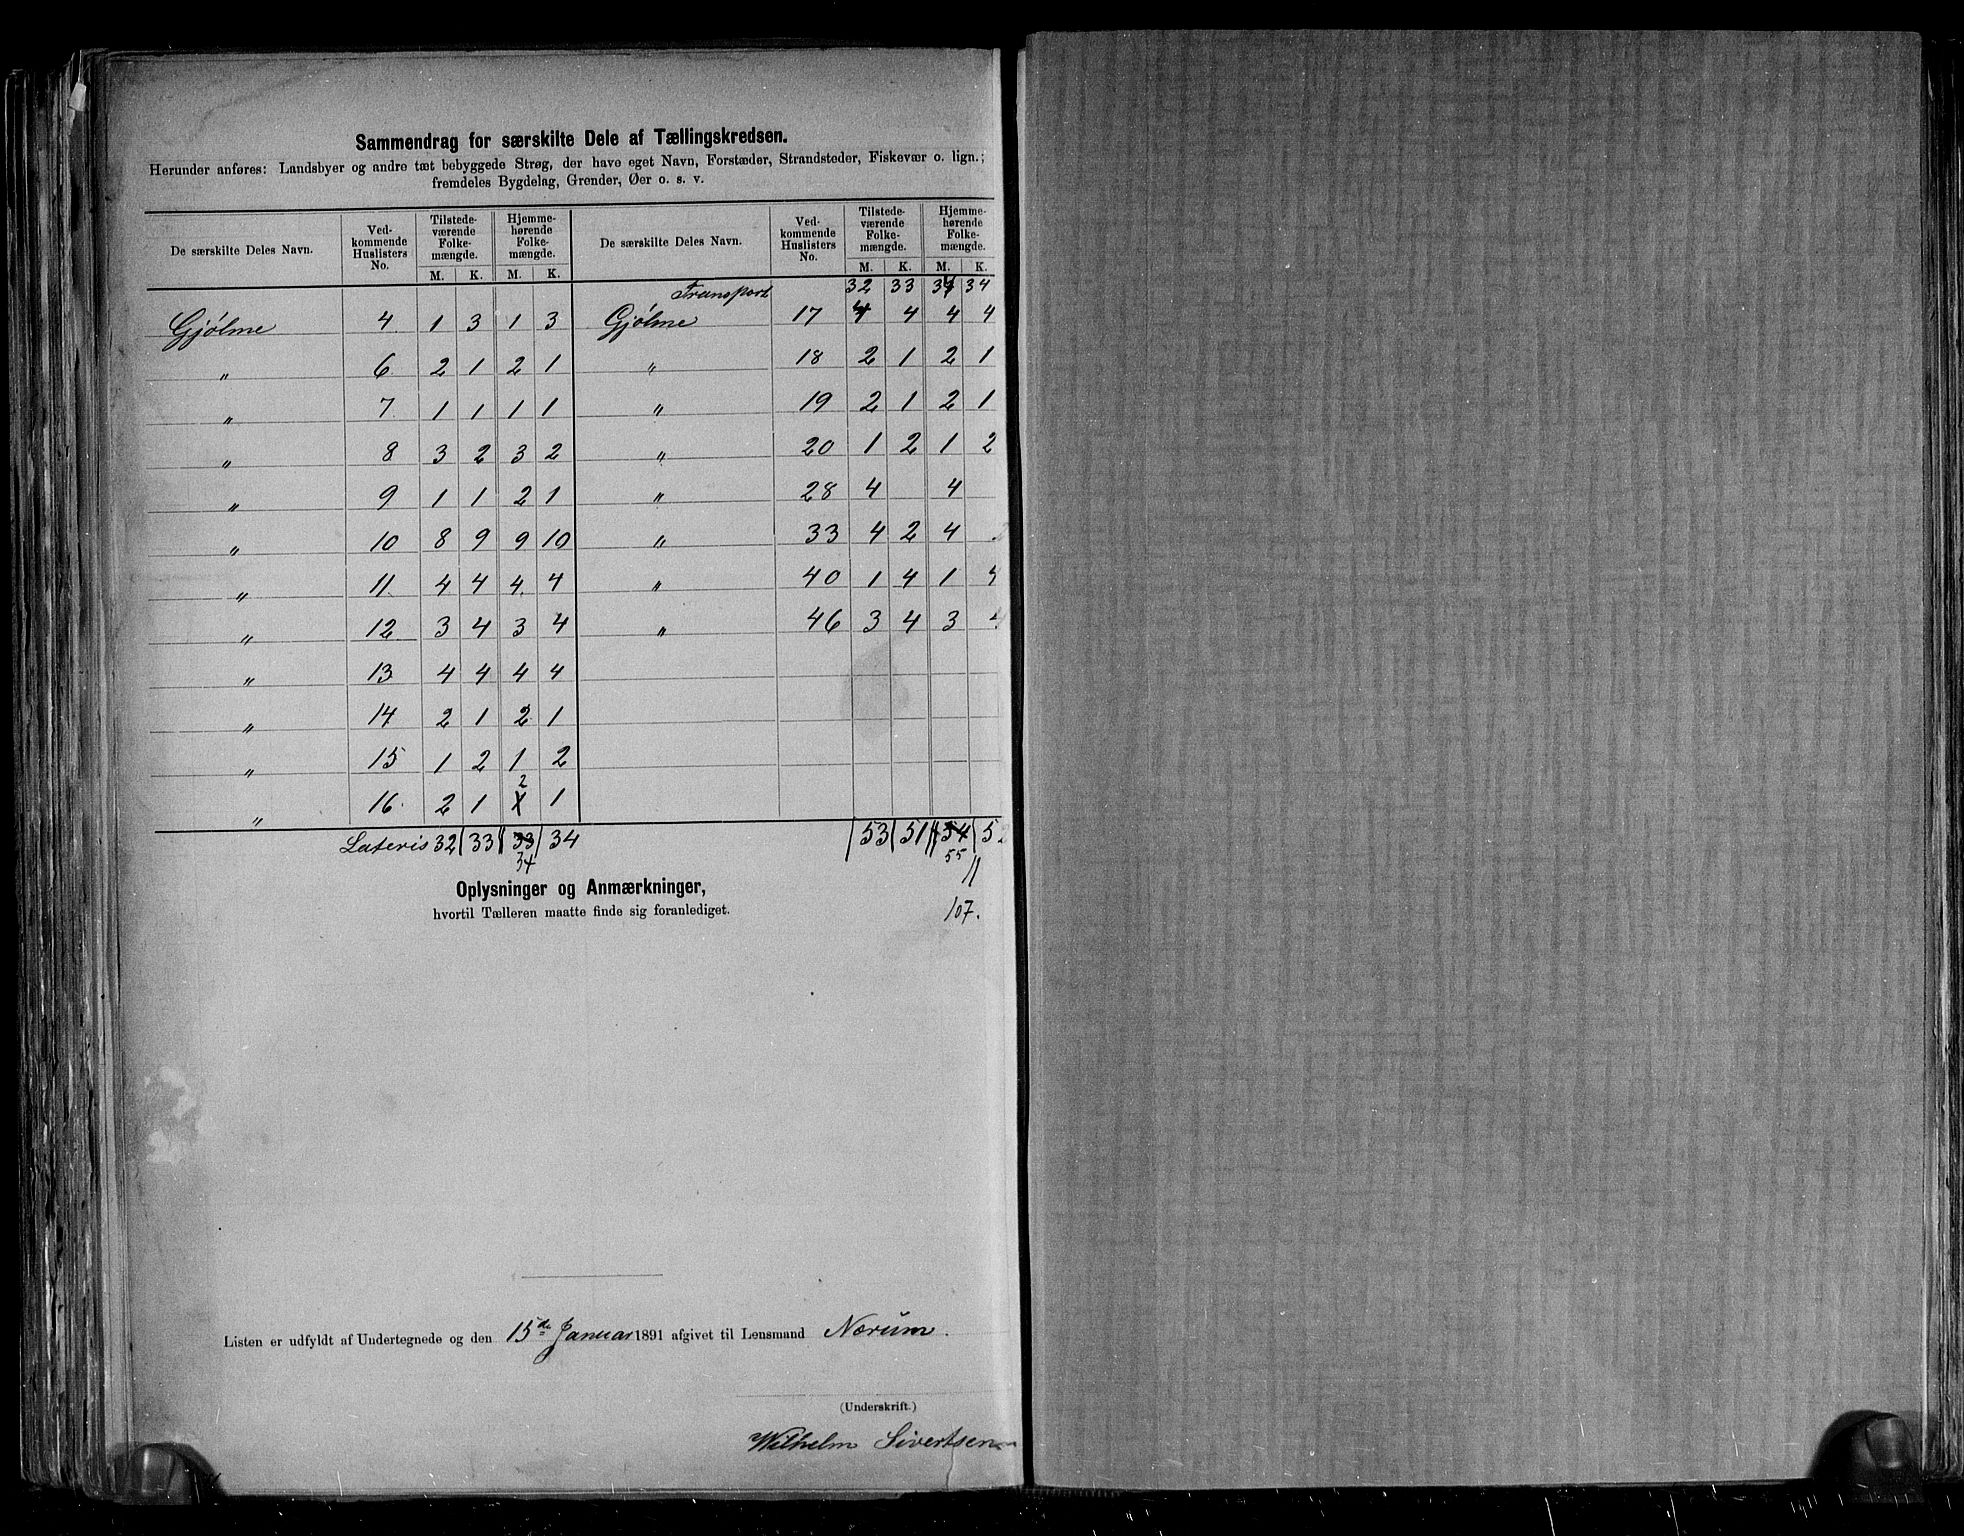 Sammendrag for særskilte Dele af Tællingskredsen.
Herunder anføres: Landsbyer og andre tæt bebyggede Strøg, der have eget Navn, Forstæder, Strandsteder, Fiskevær o. lign.;
fremdeles Bygdelag, Grender, Øer o. s. v.
De særskilte Deles Navn. Ved-kommende Huslisters No. Tilstede-værende Folke-mængde. M. K. Hjemme-hørende Folke-mængde. M. K. De særskilte Deles Navn. Ved-kommende Huslisters No. Tilstede-værende Folke-mængde. M. K. Hjemme-hørende Folke-mængde. M. K.
Transport 32 33 34 34
Gjølme 4 1 3 1 3 Gjølme 17 4 4 4 4
" 6 2 1 2 1 " 18 2 1 2 1
" 7 1 1 1 1 " 19 2 1 2 1
" 8 3 2 3 2 " 20 1 2 1 2
" 9 1 1 2 1 " 28 4 4
" 10 8 9 9 10 " 33 4 2 4 2
" 11 4 4 4 4 " 40 1 4 1 4
" 12 3 4 3 4 " 46 3 4 3 4
" 13 4 4 4 4
" 14 2 1 2 1
" 15 1 2 1 2
2
" 16 2 1 1 1
Lateris 32 33 33 34 53 51 54 52
34 55
107.
Oplysninger og Anmærkninger,
hvortil Tælleren maatte finde sig foranlediget.
Listen er udfyldt af Undertegnede og den 15de Januar 1891 afgivet til Lensmand Nærum.
(Underskrift.)
Wilhelm Sivertsen